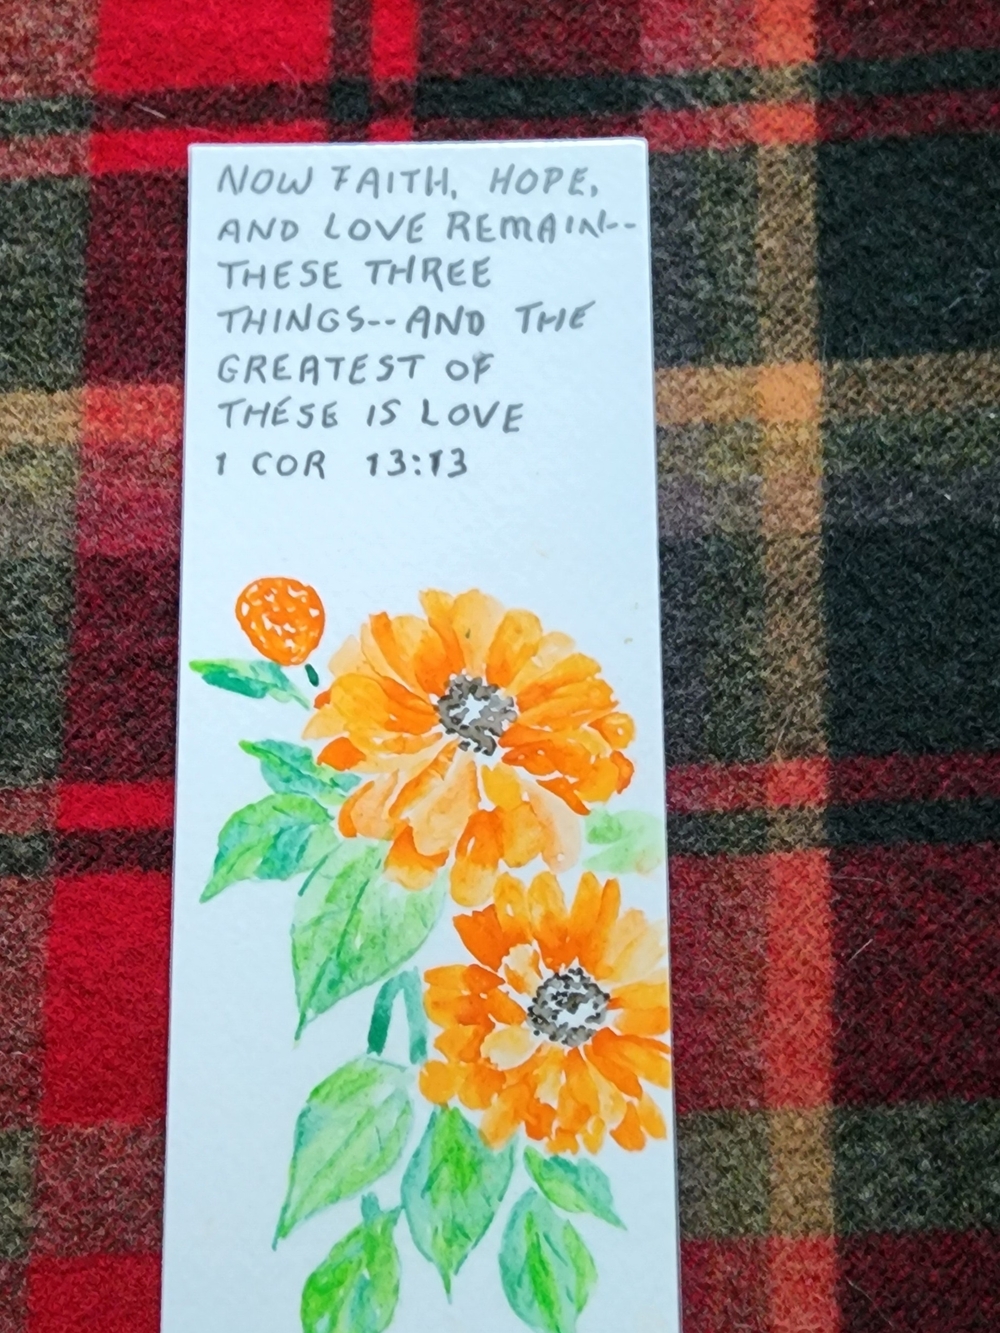 NOW FAITH, HOPE,
AND LOVE REMAIN--
THESE THREE
THINGS--AND THE
GREATEST OF
THESE IS LOVE
1 COR 13:13